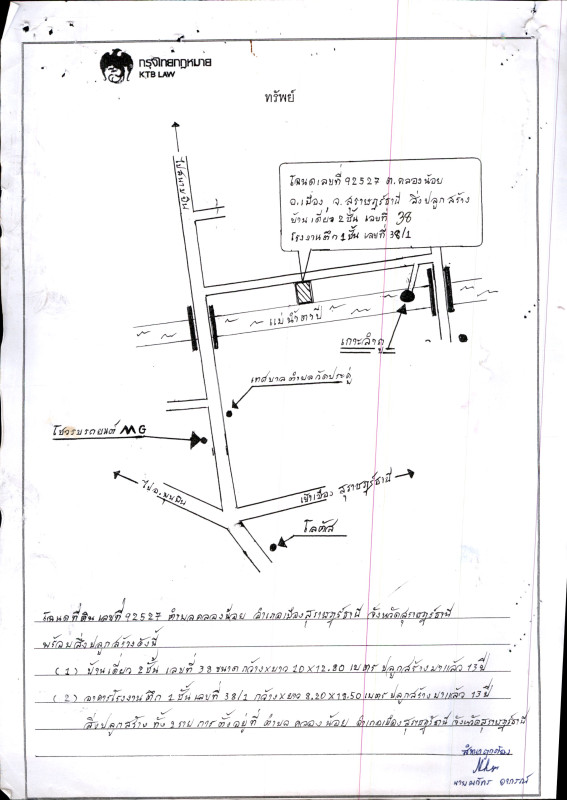 กรุงไทยกฎหมาย
KTB LAW
ทรัพย์
โฉนดเลขที่ 92527 ต.คลองน้อย
อ.เมือง จ.สุราษฎร์ธานี สิ่งปลูกสร้าง
บ้านเดี่ยว 2 ชั้น เลขที่ 38
โรงงานตึก 1 ชั้น เลขที่ 38/1
ไปสนามบิน
แม่น้ำตาปี
เกาะลำพู
เทศบาลตำบลวัดประดู่
โชว์รูมรถยนต์ MG
ไป อ.พุนพิน
เข้าเมือง สุราษฎร์ธานี
โลตัส
โฉนดที่ดินเลขที่ 92527 ตำบลคลองน้อย อำเภอเมืองสุราษฎร์ธานี จังหวัดสุราษฎร์ธานี
พร้อมสิ่งปลูกสร้างดังนี้
(1) บ้านเดี่ยว 2 ชั้น เลขที่ 38 ขนาดกว้างxยาว 10x12.80 เมตร ปลูกสร้างมาแล้ว 13 ปี
(2) อาคารโรงงานตึก 1 ชั้น เลขที่ 38/1 กว้างxยาว 8.20x18.50 เมตร ปลูกสร้างมาแล้ว 13 ปี
สิ่งปลูกสร้าง ทั้ง 2 รายการ ตั้งอยู่ที่ ตำบล คลองน้อย อำเภอเมืองสุราษฎร์ธานี จังหวัดสุราษฎร์ธานี
สำเนาถูกต้อง